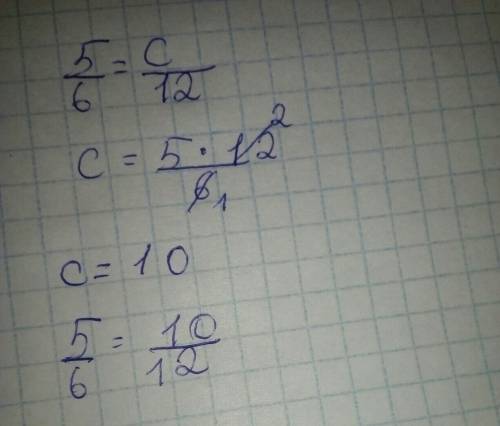 5/6 = c/12
c = 5 · 12 2 / 6 1
c = 10
5/6 = 10/12